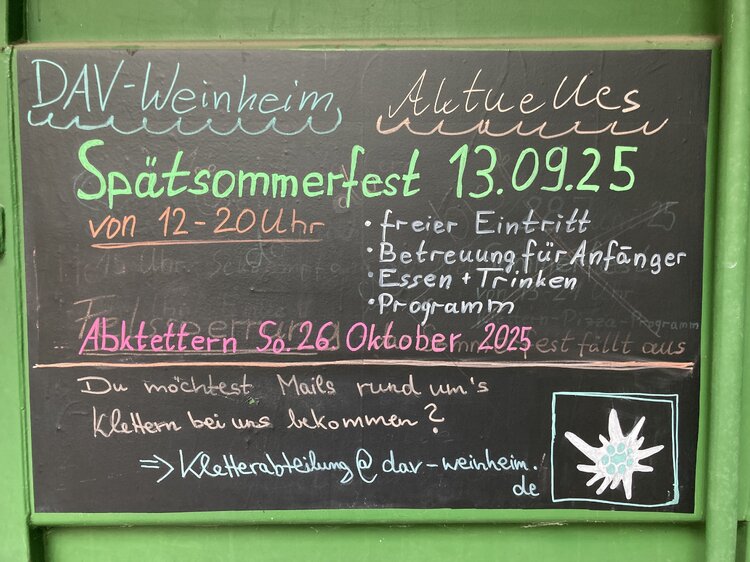 DAV-Weinheim
Aktuelles
Spätsommerfest 13.09.25
von 12-20 Uhr
• freier Eintritt
• Betreuung für Anfänger
• Essen + Trinken
• Programm
Abktettern So. 26 Oktober 2025
fällt aus
Du möchtest Mails rund um's
Klettern bei uns bekommen?
⇒ Kletterabteilung@dav-weinheim.
de